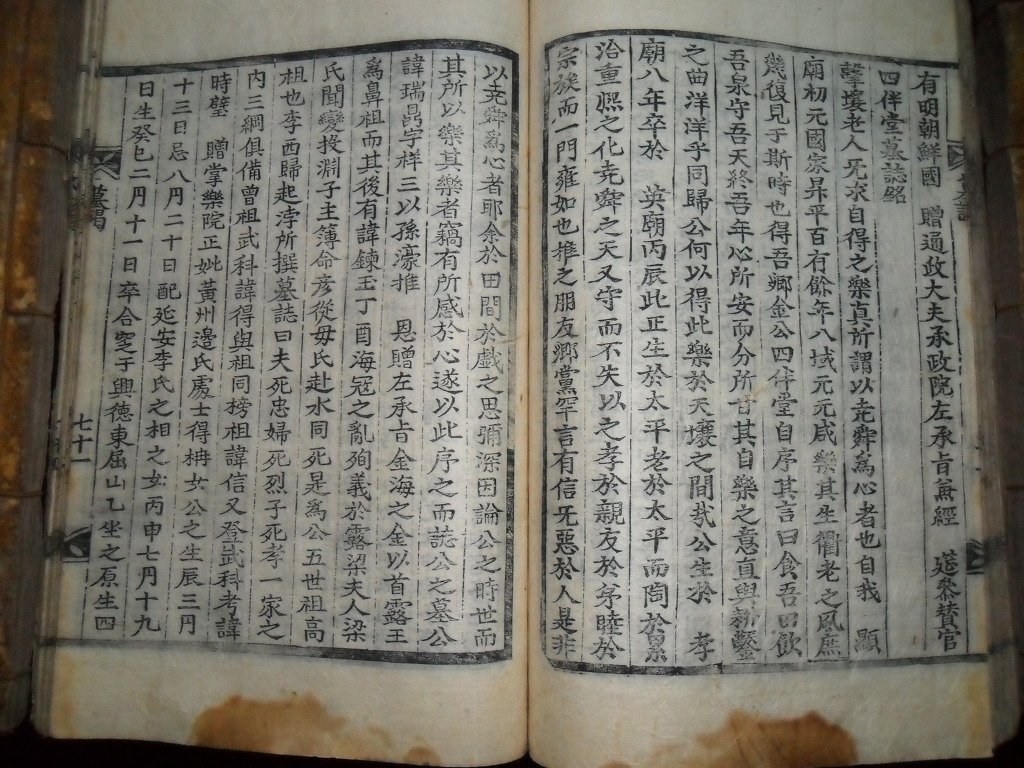 有明朝鮮國 贈通政大夫承政院左承旨兼經 筵參贊官
四伴堂墓誌銘
擊壤老人旡求自得之樂眞所謂以堯舜爲心者也自我 顯
廟初元國家昇平百有餘年八域元元咸樂其生衢老之風庶
幾復見于斯時也得吾鄕金公四伴堂自序其言曰食吾田飮
吾泉守吾天終吾年心所安而分所甘其自樂之意直與耕鑿
之曲洋洋乎同歸公何以得此樂於天壤之間哉公生於 孝
廟八年卒於 英廟丙辰此正生於太平老於太平而陶於累
治重熙之化堯舜之天又守而不失以之孝於親友於弟睦於
宗族而一門雍如也推之朋友鄕黨罕言有信旡惡於人是非
以堯舜爲心者耶余於田間於戲之思彌深因論公之時世而
其所以樂其樂者竊有所感於心遂以此序之而誌公之墓公
諱瑞昌字祥三以孫濠推 恩贈左承旨金海之金以首露王
爲鼻祖而其後有諱鍊玉丁酉海冦之亂殉義於露梁夫人梁
氏聞變投淵子主簿命彥從毋氏赴水同死是爲公五世祖高
祖也李西歸起浡所撰墓誌曰夫死忠婦死烈子死孝一家之
內三綱俱備曾祖武科諱得與祖同榜祖諱信又登武科考諱
時璧 贈掌樂院正妣黃州邊氏處士得柟女公之生辰三月
十三日忌八月二十日配延安李氏之相之女丙申七月十九
日生癸巳二月十一日卒合窆于興德東屈山乙坐之原生四
墓碣
七十一